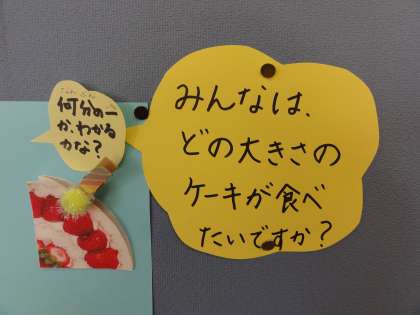 なんぶん
何分の一
か、わかる
かな？
みんなは、
どの大きさの
ケーキが食べ
たいですか？